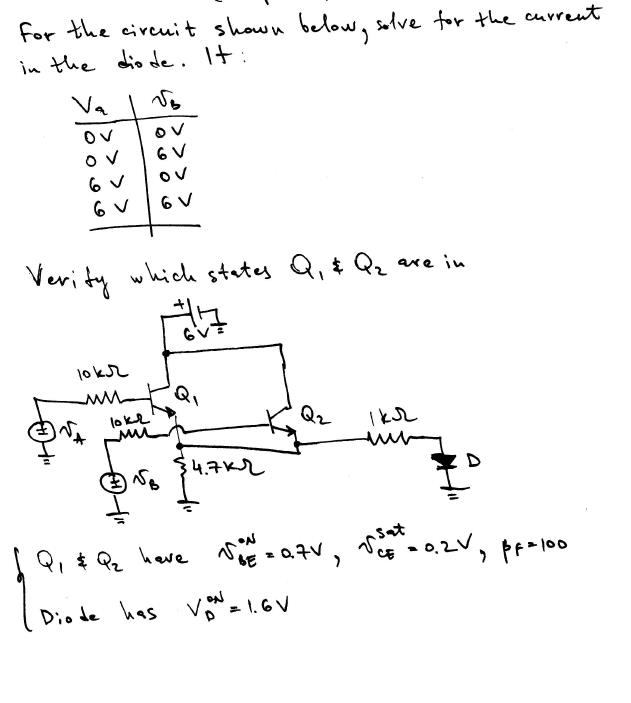 For the circuit shown below, solve for the current
in the diode. If:
Va | VB
0V | 0V
0V | 6V
6V | 0V
6V | 6V
Verify which states Q1 & Q2 are in
+
6V
10kΩ
Q1
VA
10kΩ
Q2
1kΩ
VB
4.7kΩ
D
Q1 & Q2 have VBE^ON = 0.7V, VCE^sat = 0.2V, βF=100
Diode has VD^ON = 1.6V